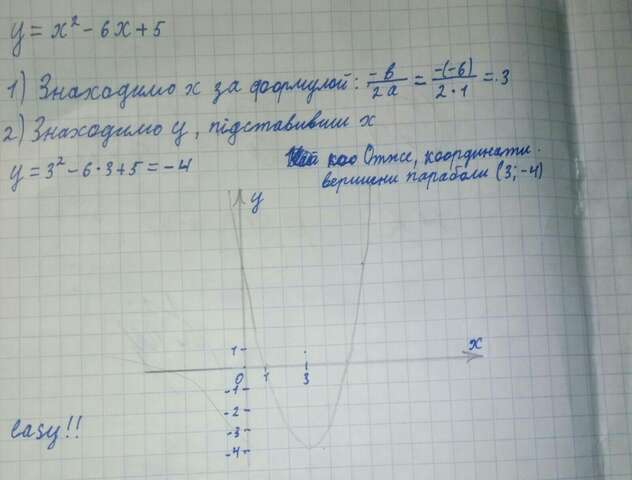 y = x² - 6x + 5
1) Знаходимо x за формулой: -в/2a = -(-6)/2·1 = 3
2) Знаходимо y, підставивши x
y = 3² - 6·3 + 5 = -4
Отже, координати
вершини параболи (3; -4)
y
x
1
0 1 3
-1
-2
-3
-4
easy!!